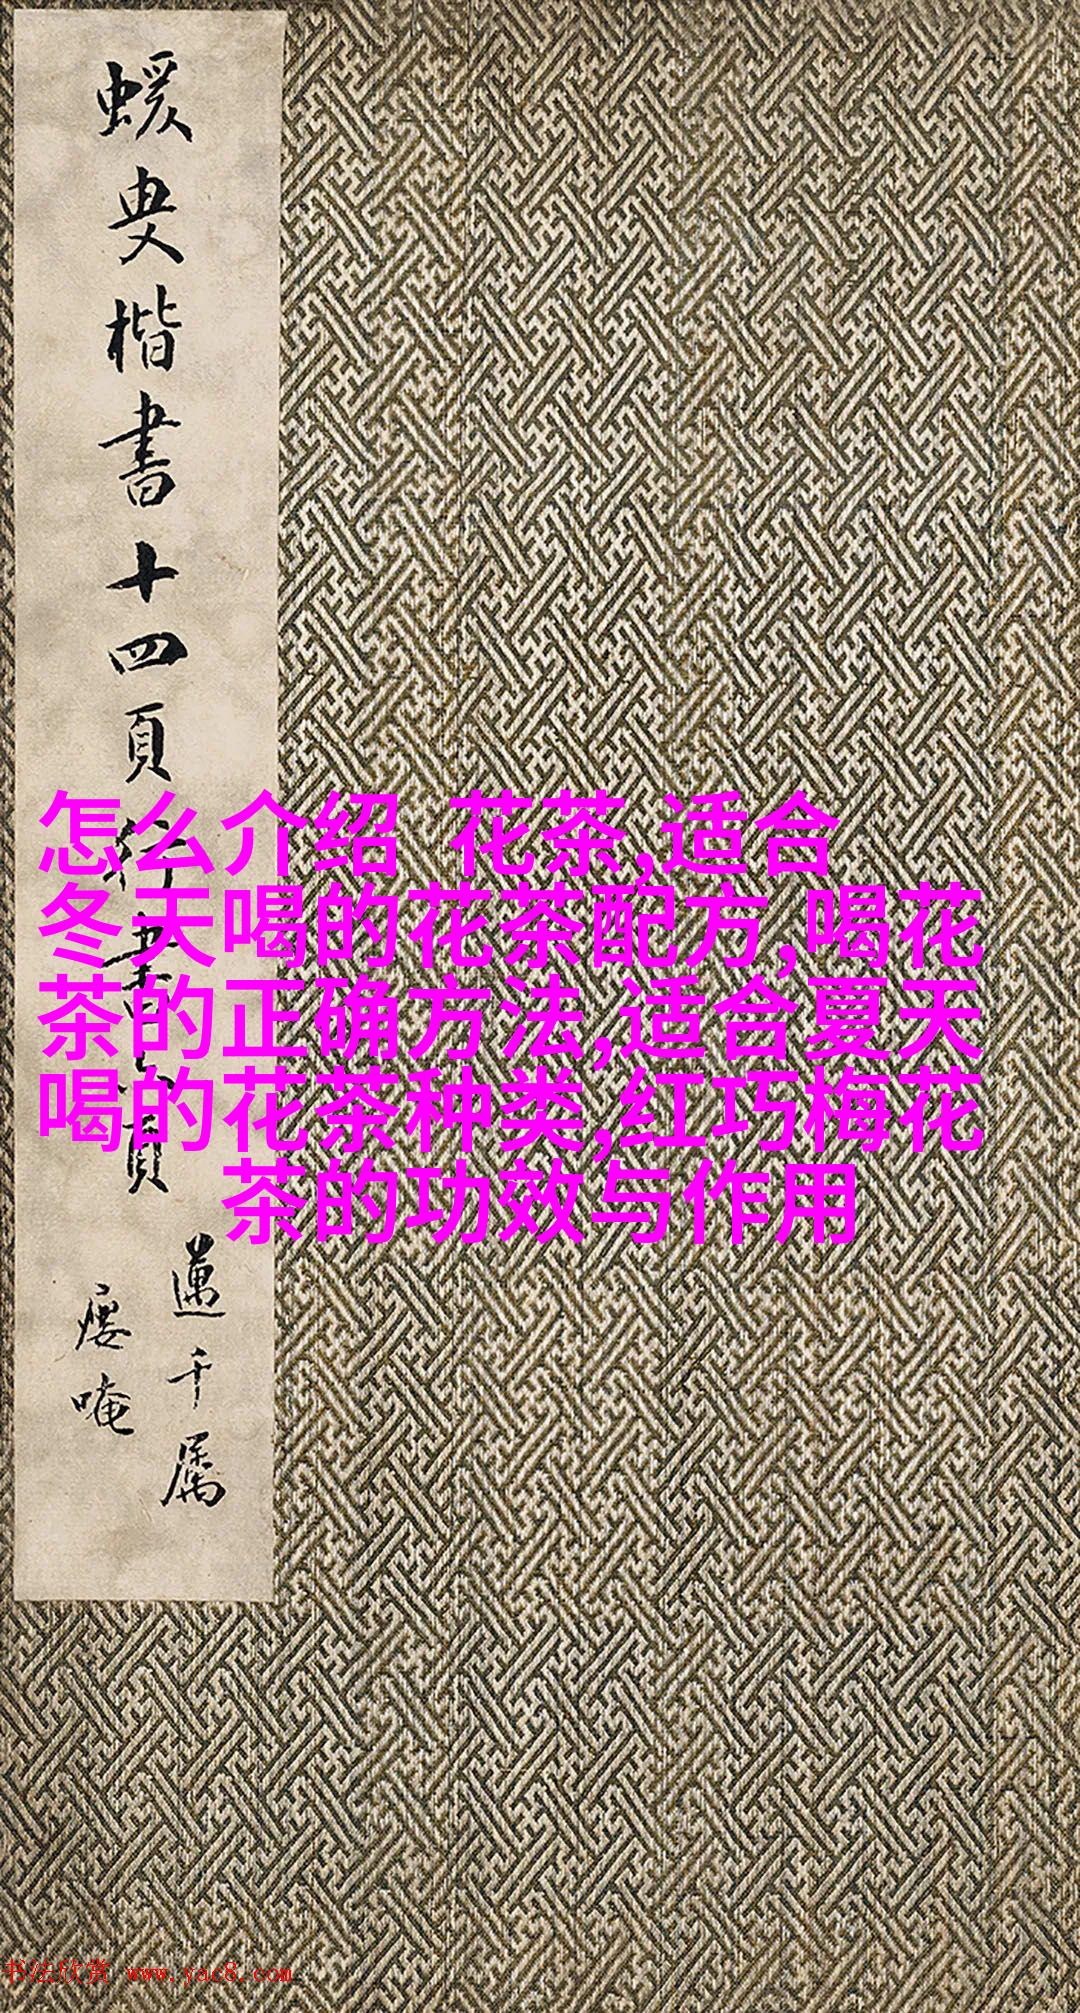 蝯叟楷書十四頁行書六頁
邁千屬
廔唵
怎么介绍 花茶,适合
冬天喝的花茶配方,喝花
茶的正确方法,适合夏天
喝的花茶种类,红巧梅花
茶的功效与作用
书法欣赏 www.yac8.com